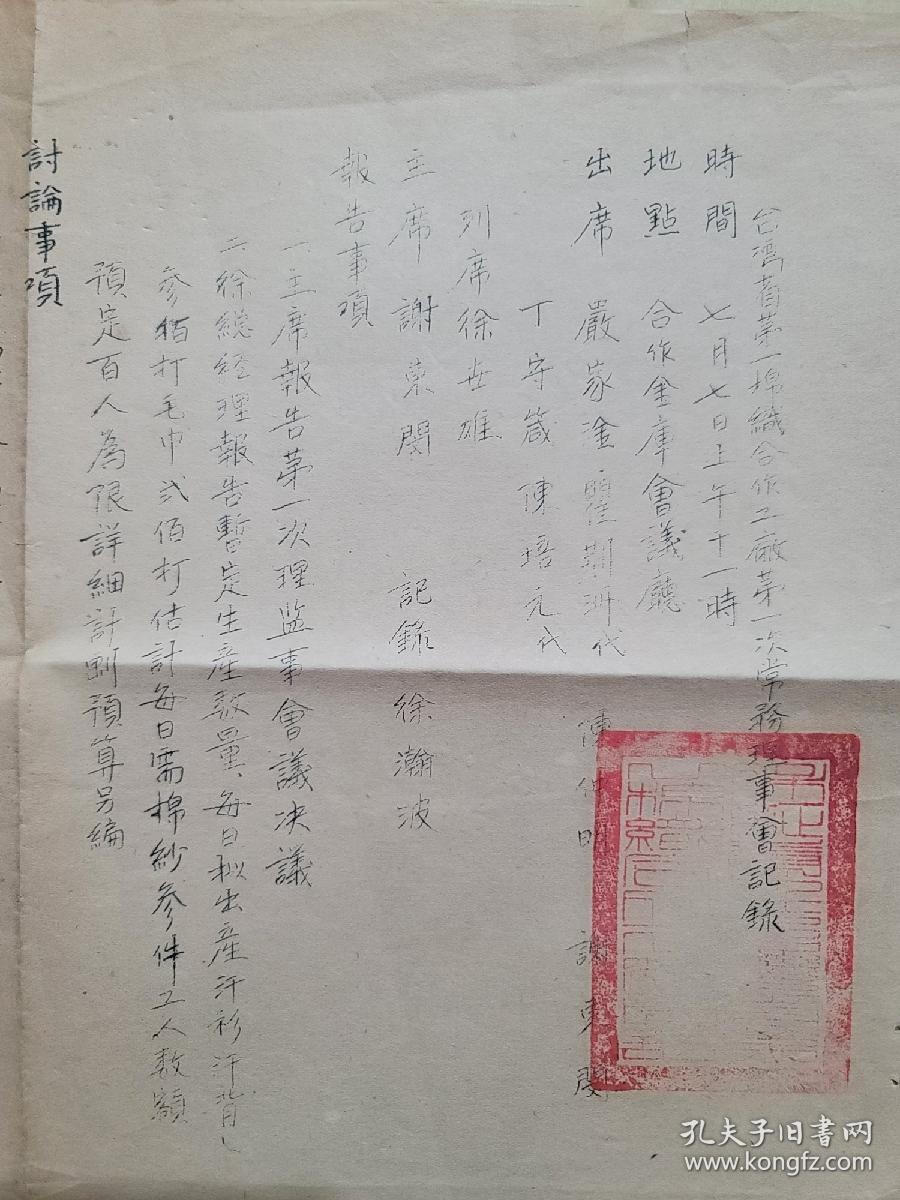 台湾省第一棉織合作工廠第一次常務理事會記錄
時間 七月七日上午十一時
地點 合作金庫會議廳
出席 嚴家淦 代 陳仲明 謝東閔
丁守箴 陳培元代
列席 徐世雄
主席 謝東閔 記錄 徐瀚波
報告事項
一、主席報告第一次理监事會議决議
二、徐總经理報告暫定生產数量、每日拟出產汗衫汗背心
参拾打毛巾弍佰打估計每日需棉紗参件工人数額
預定百人為限詳細計劃預算另編
討論事項
孔夫子旧书网
www.kongfz.com